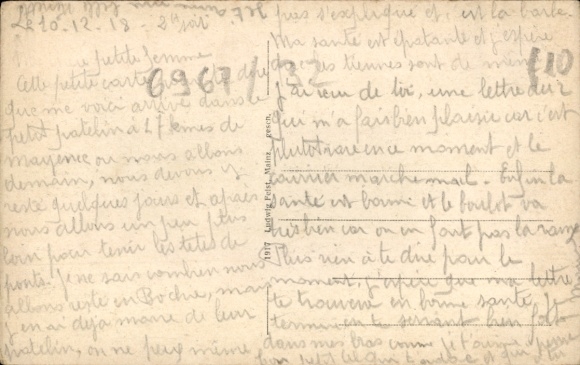 Le 10.12.18 - 2h soir
petite femme
Cette petite carte pour te dire
que me voici arrivé dans ce
petit patelin à 17 kmes de
mayence ou nous allons
demain, nous devons y
resté quelques jours et après
nous allons un peu plus
loin pour tenir les têtes de
ponts. Je ne sais combien nous
allons resté en Bochie, mais
j'en ai déjà marre de leur
patelin, on ne peux même
pas s'expliqué et c'est la barbe.
Ma santé est épatante et j'espère
que les tiennes sont de même
j'ai reçu de toi, une lettre du 2
qui m'a fais bien plaisir car c'est
plutôt rare en ce moment et le
courrier marche mal. Enfin la
santé est bonne et le boulot va
très bien car on en fout pas la rame
Plus rien à te dire pour le
moment, j'espère que ma lettre
te trouvera en bonne santé, je
termine en te serrant bien fort
dans mes bras comme je t'aime
ton petit
6967/32
110
1917 Ludwig Feist, Mainz gesch.